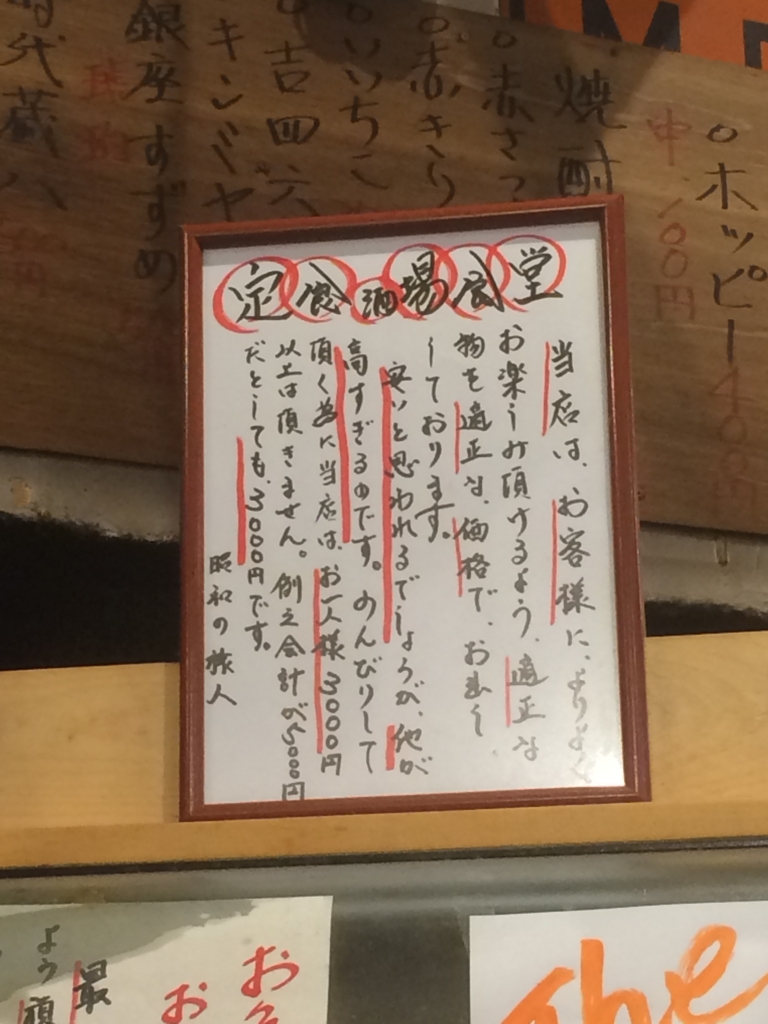 ホッピー400円
中100円
焼酎
いいちこ
吉四六
キンミヤ
銀座すずめ
時代蔵八
定食酒場食堂
当店は、お客様に、よりよく
お楽しみ頂けるよう、適正な
物を適正な価格で、お出し
しております。
安いと思われるでしょうが、他が
高すぎるのです。のんびりして
頂く為に当店は、お一人様3000円
以上は頂きません。例え会計が5000円
だとしても、3000円です。
昭和の旅人
The
お
お
最
よう